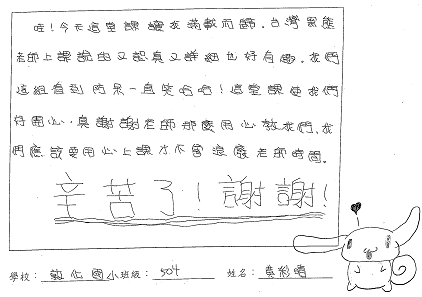 哇!今天這堂課讓我滿載而歸,台灣黑熊
老師上課說的又認真又詳細也好有趣,我們
這組看到 一直笑哈哈!這堂課使我們
好開心,真謝謝老師那麼用心教我們,我
們應該要用心上課才不會浪費老師時間。
辛苦了!謝謝!
學校: 敦化國小 班級: 504 姓名: 黃彩晴